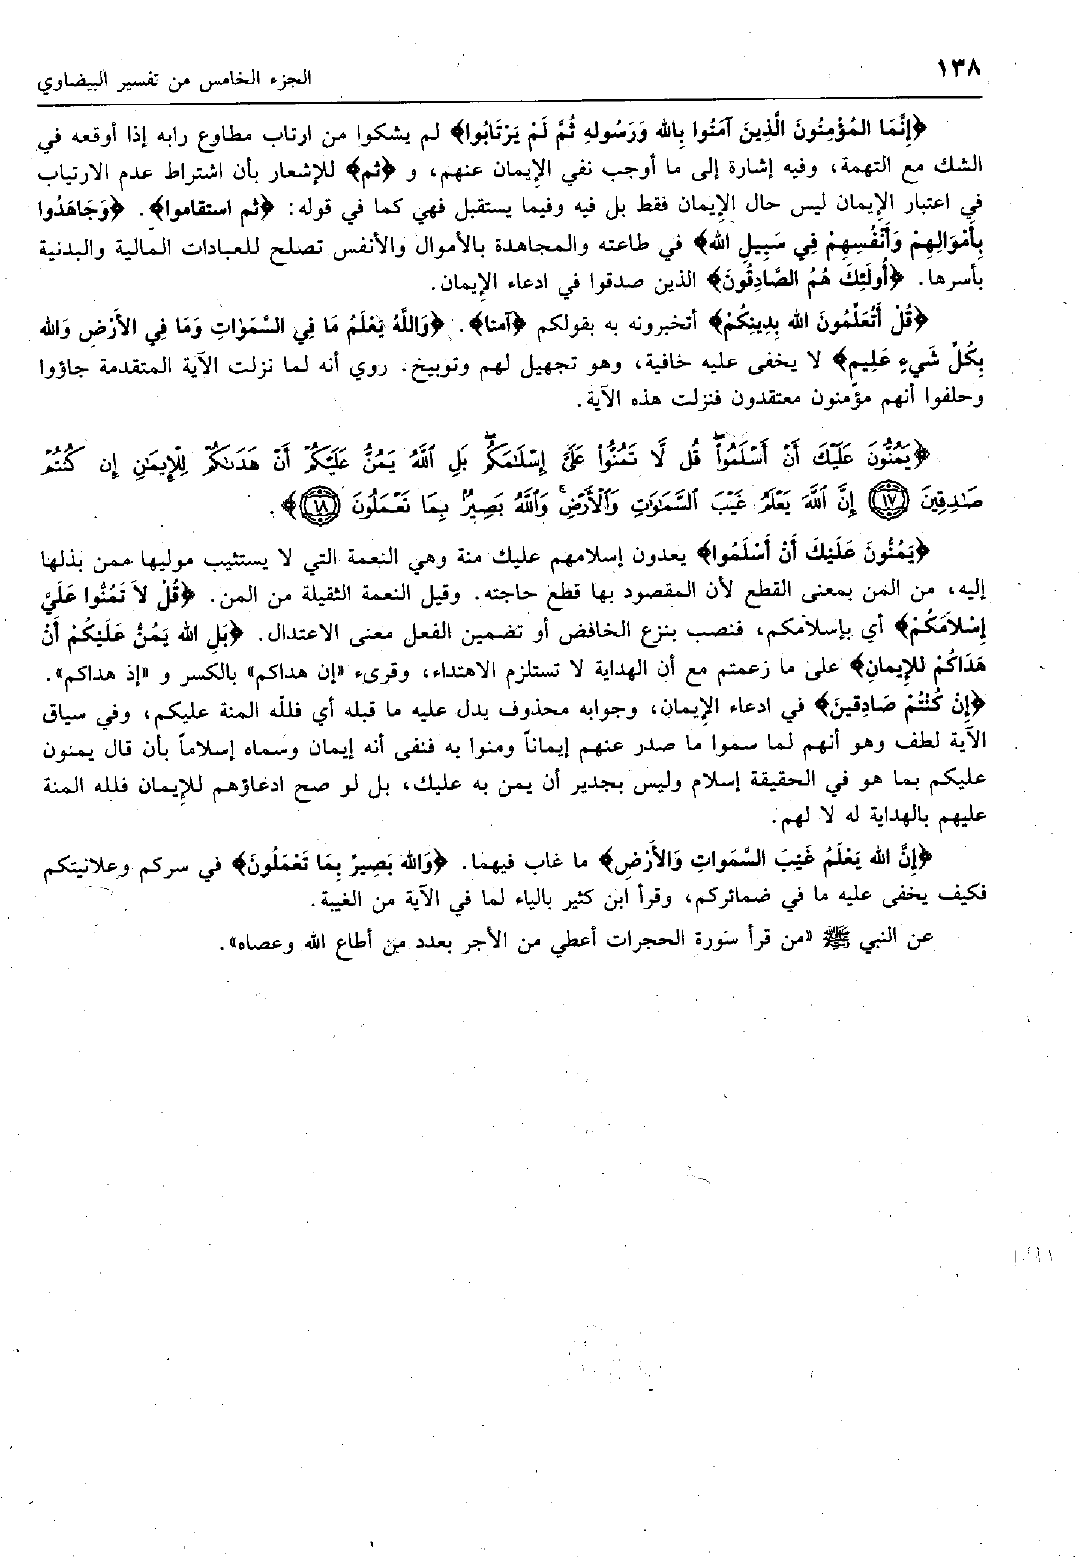 ١٣٨
الجزء الخامس من تفسير البيضاوي
﴿إِنَّمَا المُؤْمِنُونَ الَّذِينَ آمَنُوا بِاللهِ وَرَسُولِهِ ثُمَّ لَمْ يَرْتَابُوا﴾ لم يشكوا من ارتاب مطاوع رابه إذا أوقعه في
الشك مع التهمة، وفيه إشارة إلى ما أوجب نفي الإيمان عنهم، و ﴿ثم﴾ للإشعار بأن اشتراط عدم الارتياب
في اعتبار الإيمان ليس حال الإيمان فقط بل فيه وفيما يستقبل فهي كما في قوله: ﴿ثم استقاموا﴾. ﴿وَجَاهَدُوا
بِأَمْوَالِهِمْ وَأَنْفُسِهِمْ فِي سَبِيلِ اللهِ﴾ في طاعته والمجاهدة بالأموال والأنفس تصلح للعبادات المالية والبدنية
بأسرها. ﴿أُولَئِكَ هُمُ الصَّادِقُونَ﴾ الذين صدقوا في ادعاء الإيمان.
﴿قُلْ أَتُعَلِّمُونَ اللهَ بِدِينِكُمْ﴾ أتخبرونه به بقولكم ﴿آمنا﴾. ﴿وَاللَّهُ يَعْلَمُ مَا فِي السَّمَوَاتِ وَمَا فِي الأَرْضِ وَالله
بِكُلِّ شَيءٍ عَلِيم﴾ لا يخفى عليه خافية، وهو تجهيل لهم وتوبيخ. روي أنه لما نزلت الآية المتقدمة جاؤوا
وحلفوا أنهم مؤمنون معتقدون فنزلت هذه الآية.
﴿يَمُنُّونَ عَلَيْكَ أَنْ أَسْلَمُواْ قُل لَّا تَمُنُّواْ عَلَىَّ إِسْلَٰمَكُم بَلِ ٱللَّهُ يَمُنُّ عَلَيْكُمْ أَنْ هَدَىٰكُمْ لِلْإِيمَٰنِ إِن كُنتُمْ
صَٰدِقِينَ ﴿١٧﴾ إِنَّ ٱللَّهَ يَعْلَمُ غَيْبَ ٱلسَّمَٰوَٰتِ وَٱلْأَرْضِ وَٱللَّهُ بَصِيرٌۢ بِمَا تَعْمَلُونَ ﴿١٨﴾﴾.
﴿يَمُنُّونَ عَلَيْكَ أَنْ أَسْلَمُوا﴾ يعدون إسلامهم عليك منة وهي النعمة التي لا يستثيب موليها ممن بذلها
إليه، من المن بمعنى القطع لأن المقصود بها قطع حاجته. وقيل النعمة الثقيلة من المن. ﴿قُلْ لاَ تَمُنُّوا عَلَيَّ
إِسْلاَمَكُمْ﴾ أي بإسلامكم، فنصب بنزع الخافض أو تضمين الفعل معنى الاعتدال. ﴿بَلِ اللهُ يَمُنُّ عَلَيْكُمْ أَنْ
هَدَاكُمْ لِلإِيمَانِ﴾ على ما زعمتم مع أن الهداية لا تستلزم الاهتداء، وقرىء «إن هداكم» بالكسر و «إذ هداكم».
﴿إِنْ كُنْتُمْ صَادِقِينَ﴾ في ادعاء الإيمان، وجوابه محذوف يدل عليه ما قبله أي فللّه المنة عليكم، وفي سياق
الآية لطف وهو أنهم لما سموا ما صدر عنهم إيماناً ومنوا به فنفى أنه إيمان وسماه إسلاماً بأن قال يمنون
عليكم بما هو في الحقيقة إسلام وليس بجدير أن يمن به عليك، بل لو صح ادعاؤهم للإيمان فلله المنة
عليهم بالهداية له لا لهم.
﴿إِنَّ اللهَ يَعْلَمُ غَيْبَ السَّمَوَاتِ وَالأَرْضِ﴾ ما غاب فيهما. ﴿وَالله بَصِيرٌ بِمَا تَعْمَلُونَ﴾ في سركم وعلانيتكم
فكيف يخفى عليه ما في ضمائركم، وقرأ ابن كثير بالياء لما في الآية من الغيبة.
عن النبي ﷺ «من قرأ سورة الحجرات أعطي من الأجر بعدد من أطاع الله وعصاه».